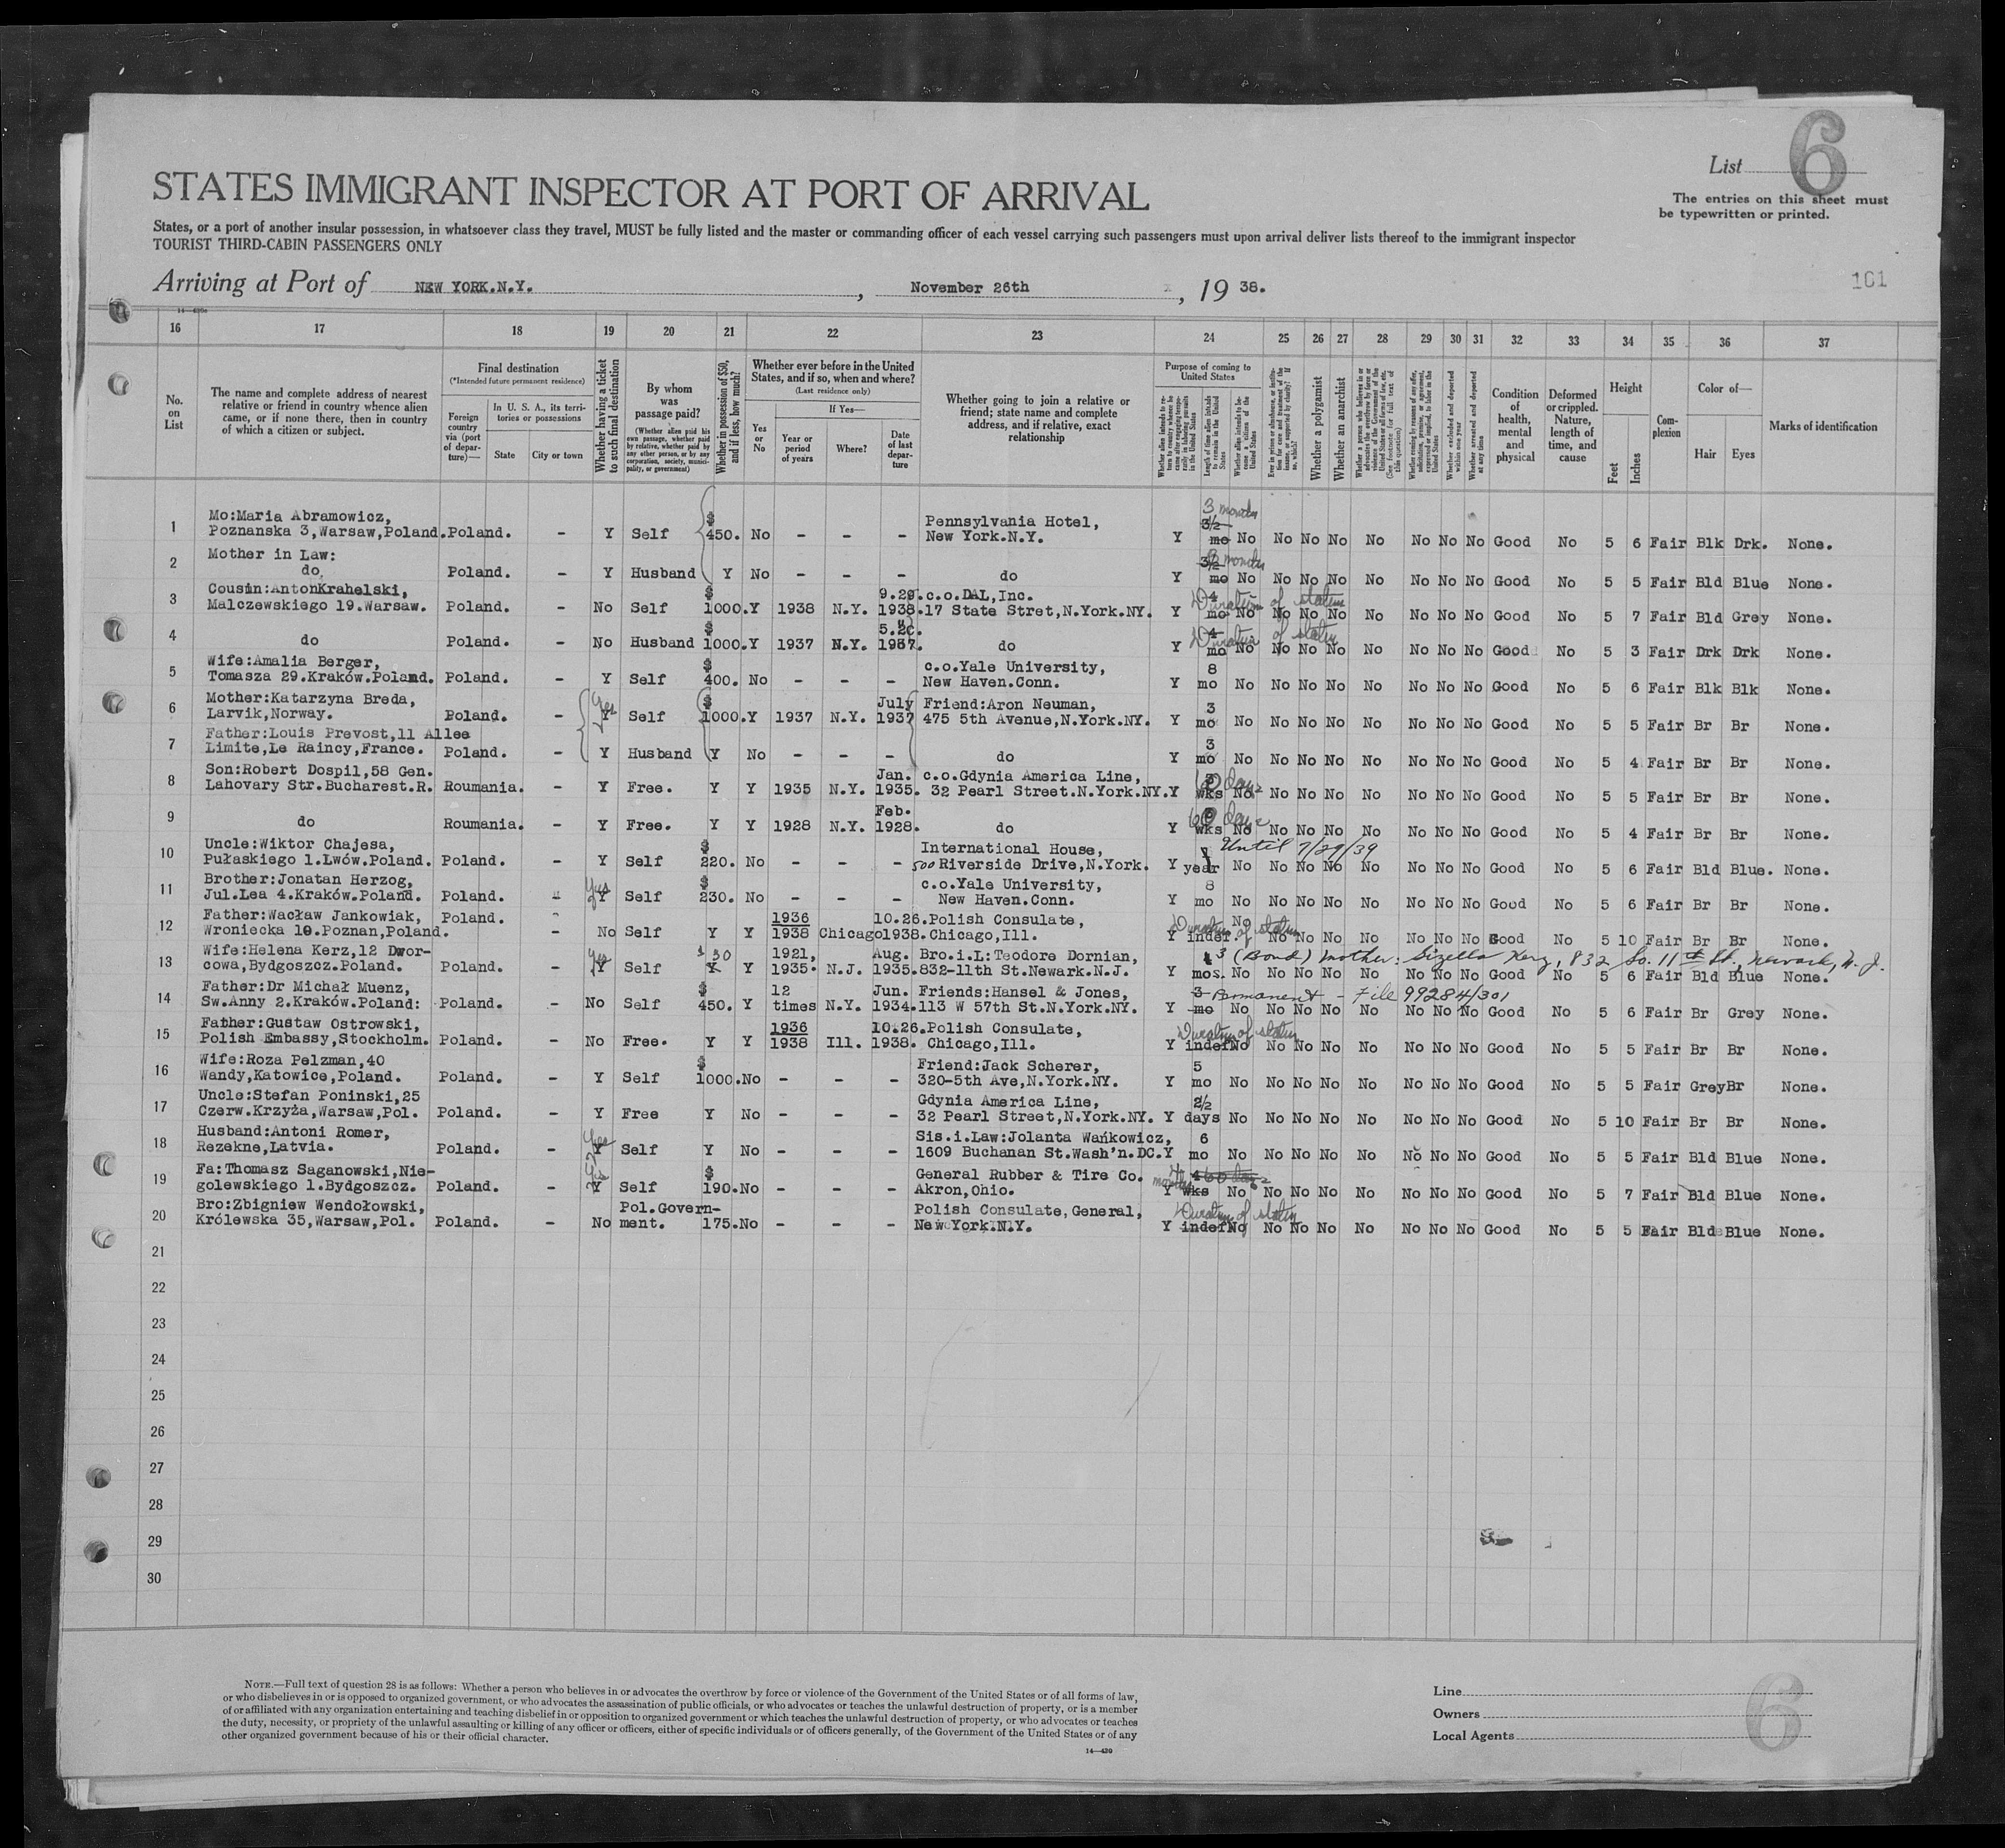 List 6
The entries on this sheet must
be typewritten or printed.
STATES IMMIGRANT INSPECTOR AT PORT OF ARRIVAL
States, or a port of another insular possession, in whatsoever class they travel, MUST be fully listed and the master or commanding officer of each vessel carrying such passengers must upon arrival deliver lists thereof to the immigrant inspector
TOURIST THIRD-CABIN PASSENGERS ONLY
Arriving at Port of NEW YORK.N.Y. , November 26th , 19 38.
101
16 17 18 19 20 21 22 23 24 25 26 27 28 29 30 31 32 33 34 35 36 37
No. on List
The name and complete address of nearest relative or friend in country whence alien came, or if none there, then in country of which a citizen or subject.
Final destination
(*Intended future permanent residence)
Foreign country via (port of departure)—
In U. S. A., its territories or possessions
State City or town
Whether having a ticket to such final destination
By whom was passage paid?
(Whether alien paid his own passage, whether paid by relative, whether paid by any other person, or by any corporation, society, municipality, or government)
Whether in possession of $50, and if less, how much?
Whether ever before in the United States, and if so, when and where?
(Last residence only)
Yes or No
If Yes—
Year or period of years Where? Date of last departure
Whether going to join a relative or friend; state name and complete address, and if relative, exact relationship
Purpose of coming to United States
Whether a polygamist
Whether an anarchist
Condition of health, mental and physical
Deformed or crippled. Nature, length of time, and cause
Height
Feet Inches
Complexion
Color of—
Hair Eyes
Marks of identification
3 months
Mo:Maria Abramowicz, $ Pennsylvania Hotel, 3½
1 Poznanska 3,Warsaw,Poland. Poland. - Y Self 450. No - - - New York.N.Y. Y mo No No No No No No No No Good No 5 6 Fair Blk Drk. None.
Mother in Law: 3½ 3 months
2 do. Poland. - Y Husband Y No - - - do Y mo No No No No No No No No Good No 5 5 Fair Bld Blue None.
Cousin:AntonKrahelski, $ 9.29. c.o.DAL,Inc. 4 Duration of status
3 Malczewskiego 19.Warsaw. Poland. - No Self 1000. Y 1938 N.Y. 1938. 17 State Stret,N.York.NY. Y mo No No No No No No No No Good No 5 7 Fair Bld Grey None.
$ 5.20. 4 Duration of status
4 do Poland. - No Husband 1000. Y 1937 N.Y. 1937. do Y mo No No No No No No No No Good No 5 3 Fair Drk Drk None.
Wife:Amalia Berger, $ c.o.Yale University, 8
5 Tomasza 29.Kraków.Poland. Poland. - Y Self 400. No - - - New Haven.Conn. Y mo No No No No No No No No Good No 5 6 Fair Blk Blk None.
Mother:Katarzyna Breda, Yes $ July Friend:Aron Neuman, 3
6 Larvik,Norway. Poland. - Y Self 1000. Y 1937 N.Y. 1937 475 5th Avenue,N.York.NY. Y mo No No No No No No No No Good No 5 5 Fair Br Br None.
Father:Louis Prevost,11 Allee 3
7 Limite,Le Raincy,France. Poland. - Y Husband Y No - - - do Y mo No No No No No No No No Good No 5 4 Fair Br Br None.
Son:Robert Dospil,58 Gen. Jan. c.o.Gdynia America Line, 60 days
8 Lahovary Str.Bucharest.R. Roumania. - Y Free. Y Y 1935 N.Y. 1935. 32 Pearl Street.N.York.NY. Y wks No No No No No No No No Good No 5 5 Fair Br Br None.
Feb. 60 days
9 do Roumania. - Y Free. Y Y 1928 N.Y. 1928. do Y wks No No No No No No No No Good No 5 4 Fair Br Br None.
Uncle:Wiktor Chajesa, $ International House, 1 Until 7/29/39
10 Pułaskiego 1.Lwów.Poland. Poland. - Y Self 220. No - - - 500 Riverside Drive,N.York. Y year No No No No No No No No Good No 5 6 Fair Bld Blue. None.
Brother:Jonatan Herzog, Yes $ c.o.Yale University, 8
11 Jul.Lea 4.Kraków.Poland. Poland. - Y Self 230. No - - - New Haven.Conn. Y mo No No No No No No No No Good No 5 6 Fair Br Br None.
Father:Wacław Jankowiak, Poland. 1936 10.26. Polish Consulate, Duration of status No
12 Wroniecka 10.Poznan,Poland. - No Self Y Y 1938 Chicago 1938. Chicago,Ill. Y indef. No No No No No No No Good No 5 10 Fair Br Br None.
Wife:Helena Kerz,12 Dwor- Yes $ 30 1921, Aug. Bro.i.L:Teodore Dornian, 3 (Bond) mother: Gizella Kerz, 832 So. 11th St., Newark, N. J.
13 cowa,Bydgoszcz.Poland. Poland. - Y Self Y Y 1935. N.J. 1935. 832-11th St.Newark.N.J. Y mos. No No No No No No No No Good No 5 6 Fair Bld Blue None.
Father:Dr Michał Muenz, $ 12 Jun. Friends:Hansel & Jones, 3 Permanent - File 99284/301
14 Sw.Anny 2.Kraków.Poland: Poland. - No Self 450. Y times N.Y. 1934. 113 W 57th St.N.York.NY. Y mo No No No No No No No No Good No 5 6 Fair Br Grey None.
Father:Gustaw Ostrowski, 1936 10.26. Polish Consulate, Duration of status
15 Polish Embassy,Stockholm. Poland. - No Free. Y Y 1938 Ill. 1938. Chicago,Ill. Y indef No No No No No No No No Good No 5 5 Fair Br Br None.
Wife:Roza Pelzman,40 $ Friend:Jack Scherer, 5
16 Wandy,Katowice,Poland. Poland. - Y Self 1000. No - - - 320-5th Ave,N.York.NY. Y mo No No No No No No No No Good No 5 5 Fair Grey Br None.
Uncle:Stefan Poninski,25 Gdynia America Line, 2½
17 Czerw.Krzyża,Warsaw,Pol. Poland. - Y Free Y No - - - 32 Pearl Street,N.York.NY. Y days No No No No No No No No Good No 5 10 Fair Br Br None.
Husband:Antoni Romer, Yes Sis.i.Law:Jolanta Wańkowicz, 6
18 Rezekne,Latvia. Poland. - Y Self Y No - - - 1609 Buchanan St.Wash'n.DC. Y mo No No No No No No No No Good No 5 5 Fair Bld Blue None.
Fa:Thomasz Saganowski,Nie- Yes $ General Rubber & Tire Co. 4 months 60 days
19 golewskiego 1.Bydgoszcz. Poland. - Y Self 190. No - - - Akron,Ohio. Y wks No No No No No No No No Good No 5 7 Fair Bld Blue None.
Bro:Zbigniew Wendołowski, Pol.Govern- Polish Consulate,General, Duration of status
20 Królewska 35,Warsaw,Pol. Poland. - No ment. 175. No - - - New York.N.Y. Y indef No No No No No No No No Good No 5 5 Fair Bld Blue None.
21
22
23
24
25
26
27
28
29
30
NOTE.—Full text of question 28 is as follows: Whether a person who believes in or advocates the overthrow by force or violence of the Government of the United States or of all forms of law,
or who disbelieves in or is opposed to organized government, or who advocates the assassination of public officials, or who advocates or teaches the unlawful destruction of property, or is a member
of or affiliated with any organization entertaining and teaching disbelief in or opposition to organized government or which teaches the unlawful destruction of property, or who advocates or teaches
the duty, necessity, or propriety of the unlawful assaulting or killing of any officer or officers, either of specific individuals or of officers generally, of the Government of the United States or of any
other organized government because of his or their official character.
14—420
Line
Owners
Local Agents
6